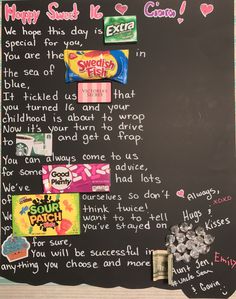 Happy Sweet 16 Ciara!
We hope this day is Extra
special for you,
You are the SWEDISH FISH in
the sea of
blue,
It tickled us VICTORIA'S SECRET that
you turned 16 and your
childhood is about to wrap
Now it's your turn to drive
to and get a frap.
You can always come to us
for some Good & Plenty advice,
We've had lots
of SOUR PATCH ourselves so don't
think twice!
want to to tell
you've stayed on
for sure,
You will be successful in
anything you choose and more
Always,
XOXO
Hugs &
Kisses
Emily
Aunt Jen
Uncle Sean
& Gavin